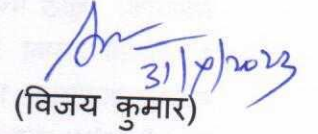 31/7/2023
(विजय कुमार)